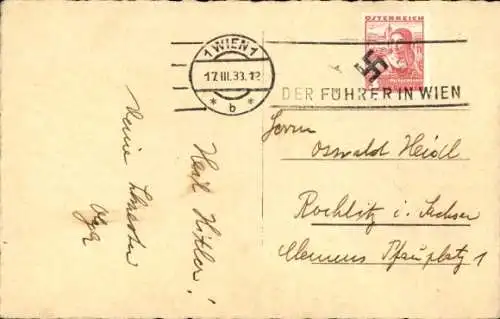 1 WIEN 1
17.III.38.12
* b *
ÖSTERREICH
DER FÜHRER IN WIEN
Heil Hitler!
Deine Schwester
Olga
Herrn
Oswald Heidl
Rochlitz i. Sachsen
Clemens Pfauplatz 1